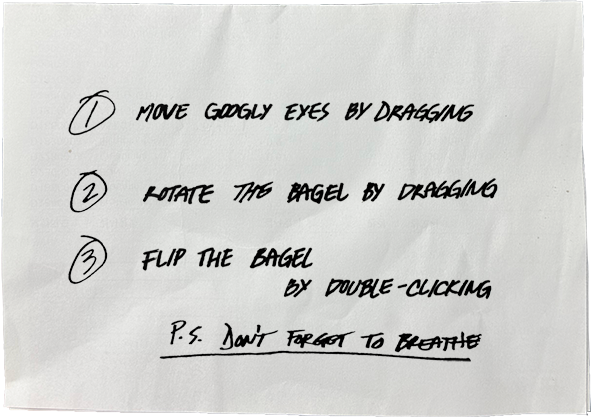 1 MOVE GOOGLY EYES BY DRAGGING
2 ROTATE THE BAGEL BY DRAGGING
3 FLIP THE BAGEL
BY DOUBLE-CLICKING
P.S. DON'T FORGET TO BREATHE